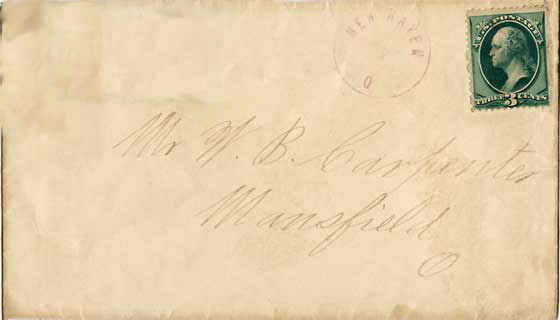 NEW HAVEN
O
U.S. POSTAGE
THREE 3 CENTS
Mr W. B. Carpenter
Mansfield
O